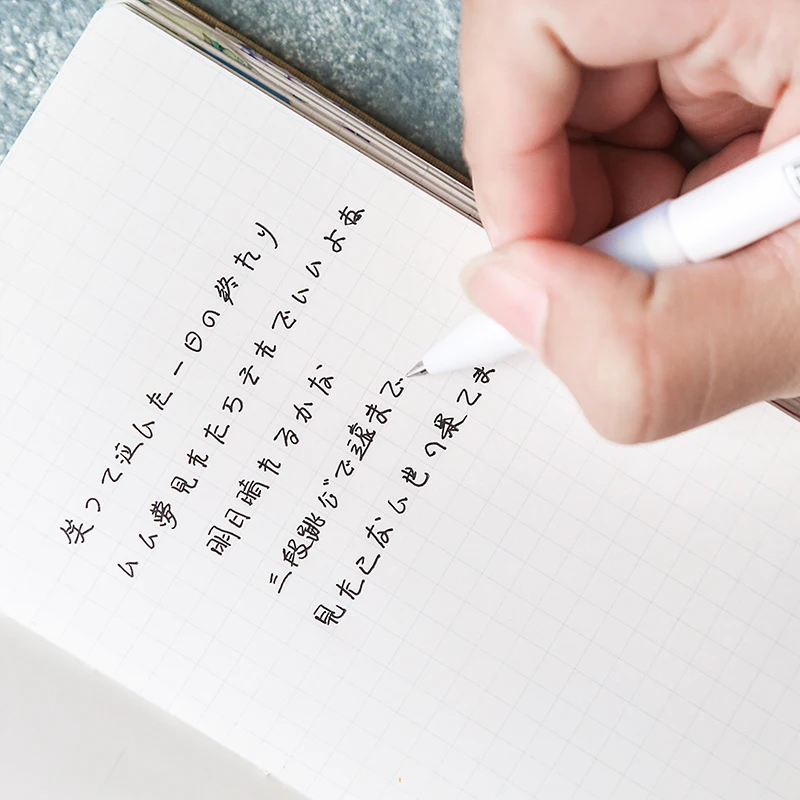 笑って泣いた一日の終わり
いい夢見れたらそれでいいよね
明日晴れるかな
三段跳びで遠まで
見たこない世の果てま